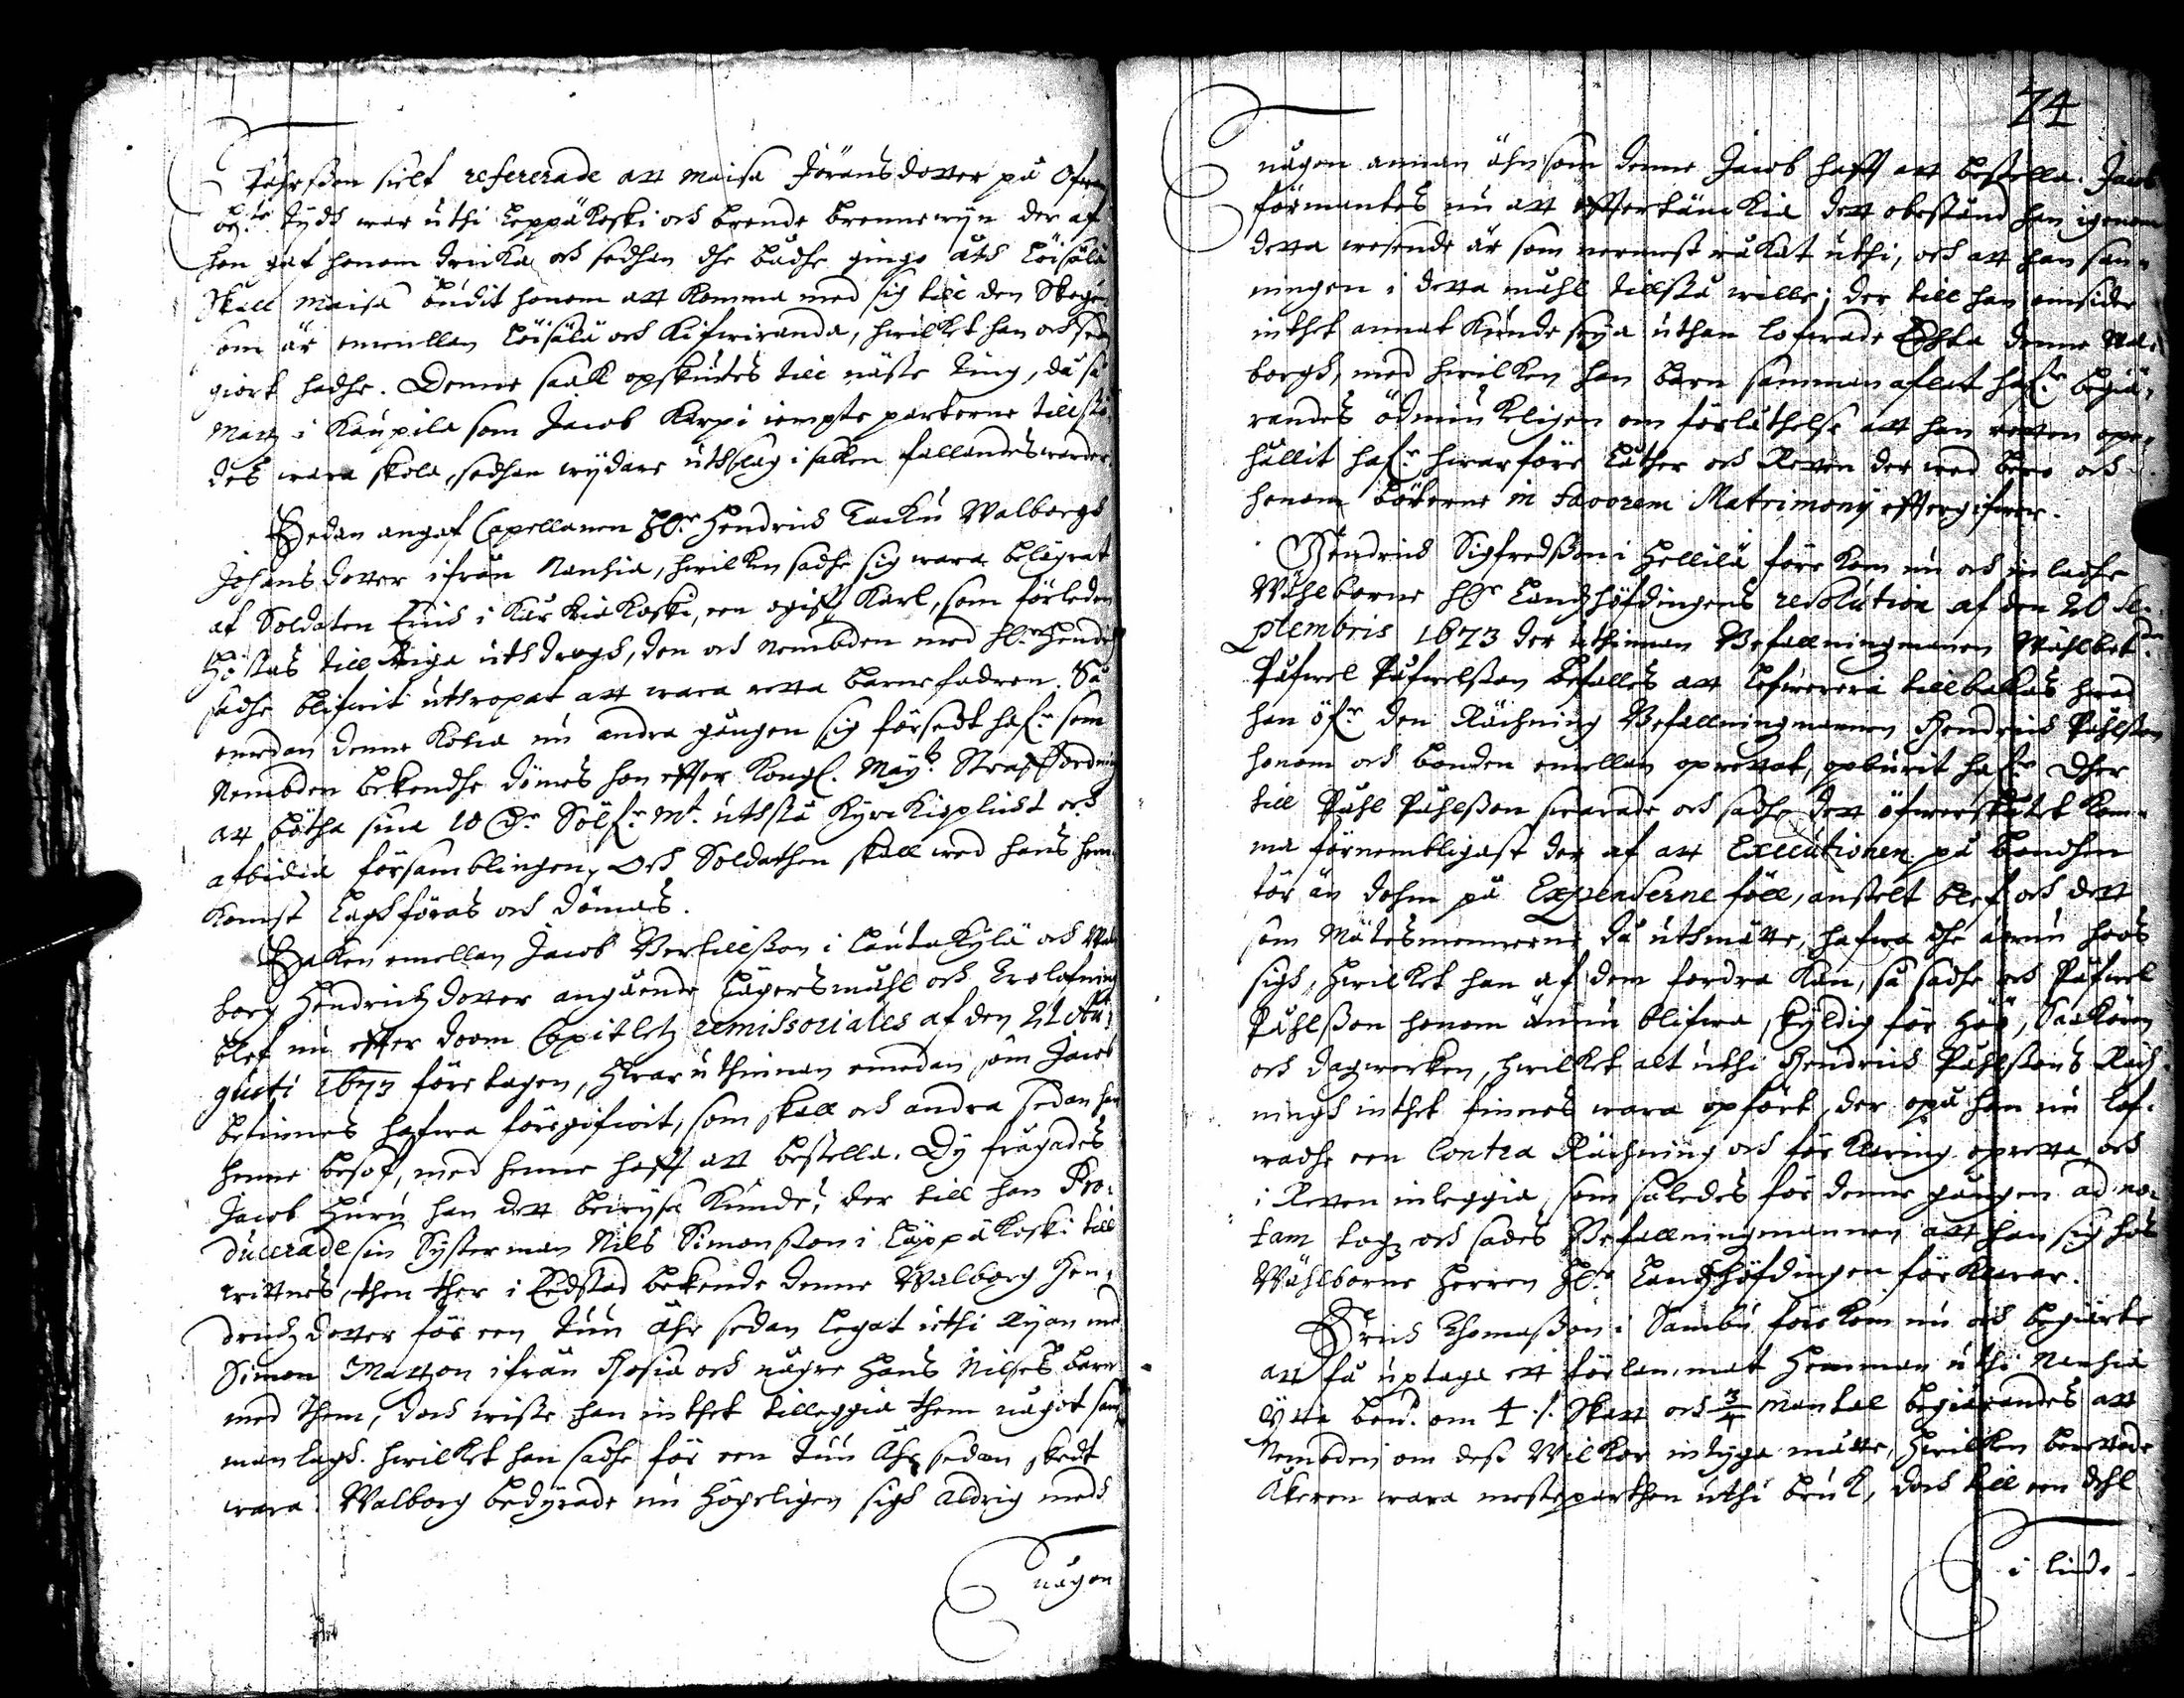 Påhlsson sielf refererade att Maisa Jöransdotter på Ofwan
be:te tydh war uthi Leppäkoski och brende brennewijn der af
hon gaf honom dricka och sedhan dhe bådhe gingo åth Löisälä
skall Maisa budit honom att komma med sig till den Skogen
som är emellan Löisälä och Kifwiranda, hwilket han och så
giort hadhe. Denne saak opskiutes till näste Ting, då så
Matz i Kaupila som Jacob Karpi iempte parterne tillstä
des wara skole, sedhan wydare uthslag i saken fallandes warder
Sedan angaf Capellanen H:r Hendrich Tacku Walborgh
Johansdotter ifrån Nanhia, hwilken sadhe sig wara belägrat
af Soldaten Erich i Kurkiakoski, een ogifft Karl, som förleden
Höstas till Riga uthdrogh, den och Nembden med H:r Hendrich
sadhe blifwit uthropat att wara retta barnefadren. Så
emedan denne Kona nu andra gången sig försedt haf:r som
Nembden bekendhe dömes hon effter Kongl. May:tz Strafford​ning
att bötha sina 10 D:r Sölf:r M:t uthstå Kyrkioplicht och
afbidia församblingen, och Soldathen skall wed hans hem
komst laghföras och dömas.
Saken emellan Jacob Bertillsson i Lautakylä och Wal
borg Hendrichzdotter angående Lägersmåhl och Trolofning
blef nu effter doom Capitletz remissoriales af den 21 Au
gusti 1673 företagen, Hwar uthinnan emedan som Jacob
befinnes hafwa föregifwit, som skall och andra sedan han
henne besof, med henne hafft att bestella. Dy frågades
Jacob huru han dett bewysa kunde, der till han Pro-
ducerade sin Systerman Nils Simonsson i Läppäkoski till
wittnes, then ther i Eedstad bekende denne Walborg Hen-
drichzdotter för een tiin åhr sedan legat uthi Ryan med
Simon Matzson ifrån och någre Hans Nilses barn
med them, doch wiste han inthet tilleggia them något sam
manlagh. hwilket han sadhe för een tiu åhr sedan skedt
wara. Walborg bedyrade nu högeligen sigh aldrig medh
någon
74
någon annan ähn som denne Jacob hafft att bestella. Jacob
förmantes nu att effterkänckia dett obestånd han igenom
detta wesende är som nermest råkat uthi, och att han san-
ningen i detta måhl tillstå wille; der till han omsider
inthet annat kunde seya uthan lofwade Ächta denne Wal-
borgh, med hwilken han barn samman aflat haf:r begiä-
randes ödmiukeligen om förlåthelse att han retten ope-
hållit haf:r hwarföre låther och Retten der wed bero och
honom böterne in favorem Matrimonij effterg​ifwer.
Hendrich Sigfredsson i Hellilä förekom nu och inladhe
Wählborne H:r Landzhöfdingens resolution af den 20 Se-
ptembris 1673 der uthinnan Befallningzmannen Wählbet:
Påfwel Påfwelsson befalles att lefwerera tillbakas hwad
han öf:r den Rächning Befallningzmannen Hendrich Påhlsson
honom och bonden emellan oprettat, opburit haf:r Dher
till Påhl Påhlsson swarade och sadhe dett öfwerskutet kom-
ma förnembligast der af att Executionen på bondhen
för än dohm på Expenserne föll, anstelt blef och dett
som Mätesmennerne då uthmätte, hafwa dhe ännu hoos
sigh, hwilket han af dem fordra kan, så sadhe och Påfwel
Påhlsson honom ännu blifwa skyldig för Höö, Saakören
och dagzwerken, hwilket alt uthi Hendrich Påhlssons Räch-
ningh inthet finnes wara opfört, der opå han nu lof-
wadhe een Contra Rächning och förklaring opretta och
i Retten inleggia, som således för denne gången ad no-
tam togz och sades Befallningmannen att han sig hos
Wählborne Herren H:r Landzhöfdingen förklarar.
Erich Thomasson i Sambu förekom nu och begiärte
att få uptaga ett förlan, mat Hemman uthi Nanhia
By ben:d om 4 ./. Skatt och 3/4 mantal begiärandes att
Nembden om dess Wilkor intyga måtte, hwilken berettade
Åkeren wara mesteparten uthi bruk, doch till een dehl
i lindo